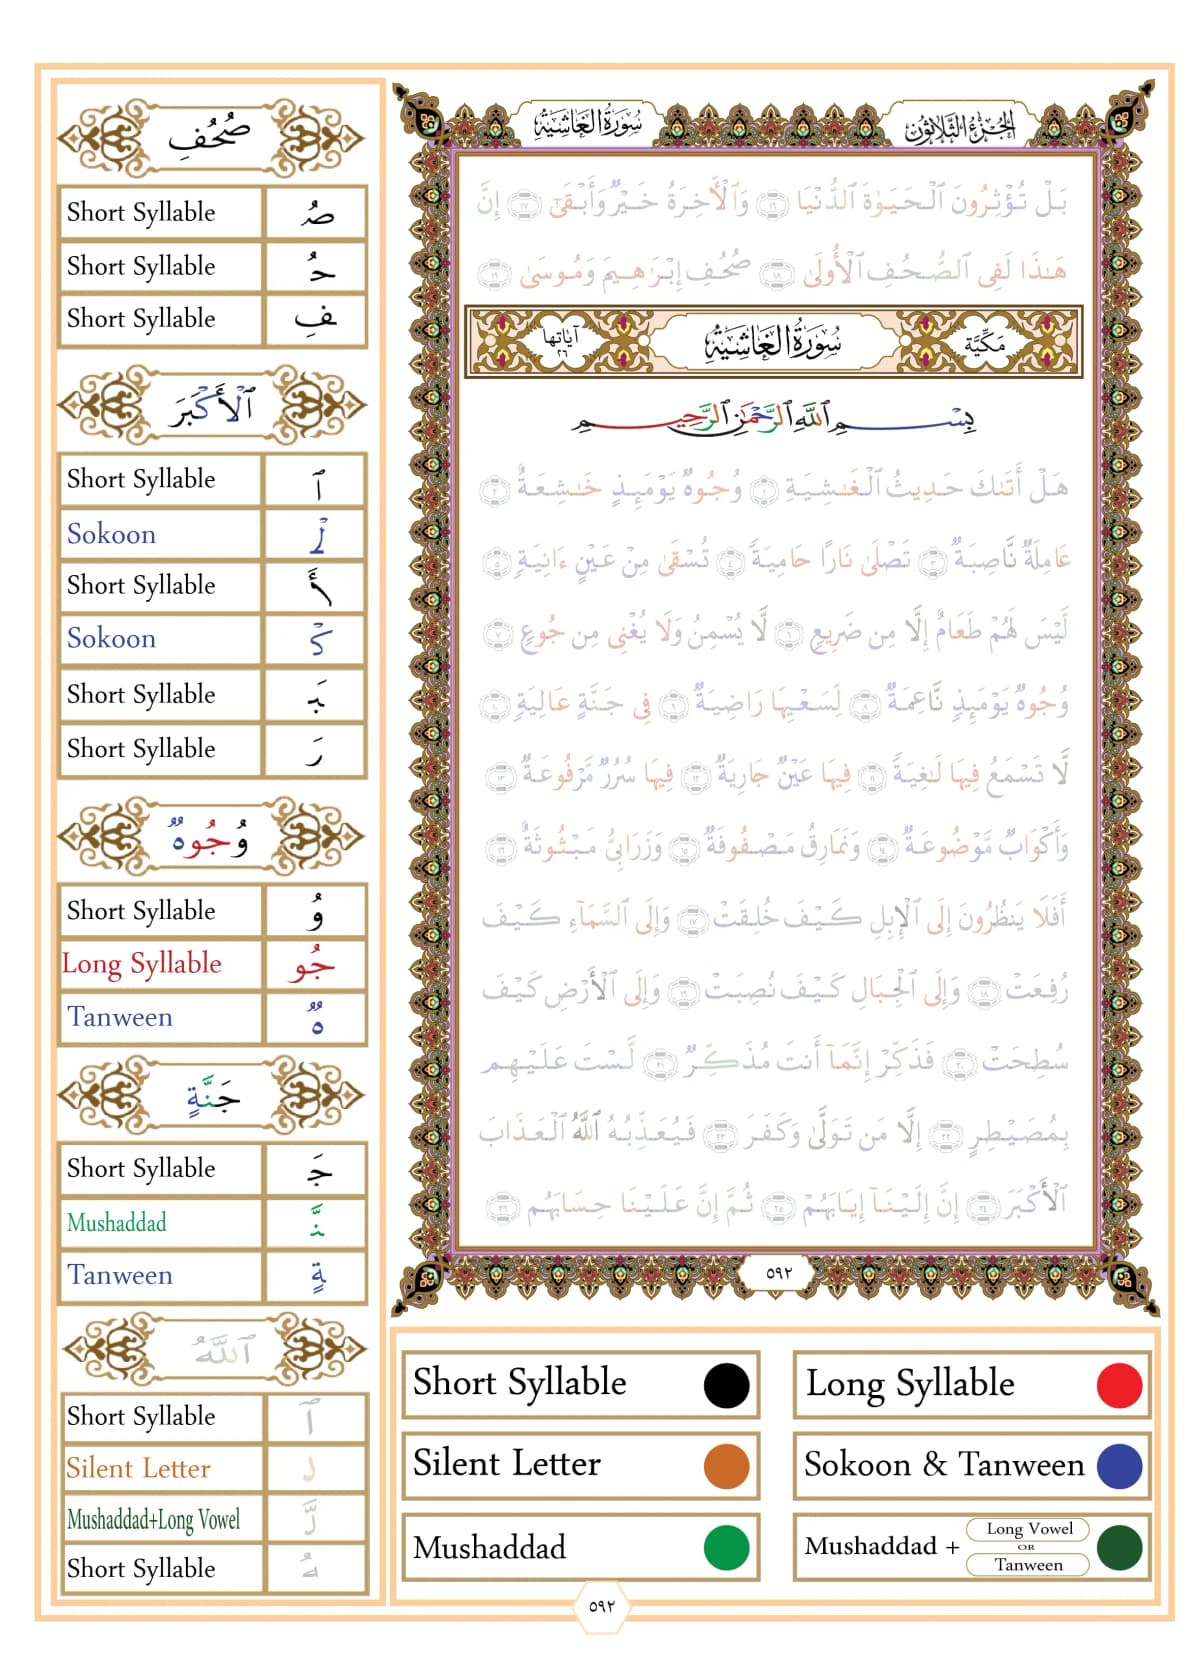 صُحُفِ
Short Syllable صُ
Short Syllable حُ
Short Syllable فِ
ٱلْأَكْبَرَ
Short Syllable ٱ
Sokoon لْ
Short Syllable أَ
Sokoon كْ
Short Syllable بَ
Short Syllable رَ
وُجُوهٌ
Short Syllable وُ
Long Syllable جُو
Tanween هٌ
جَنَّةٍ
Short Syllable جَ
Mushaddad نَّ
Tanween ةٍ
ٱللَّهُ
Short Syllable ٱ
Silent Letter ل
Mushaddad+Long Vowel لَّ
Short Syllable هُ
الجزء الثلاثون
سورة الغاشية
بَلْ تُؤْثِرُونَ ٱلْحَيَوٰةَ ٱلدُّنْيَا ١٦ وَٱلْأَخِرَةُ خَيْرٌ وَأَبْقَىٰٓ ١٧ إِنَّ
هَـٰذَا لَفِى ٱلصُّحُفِ ٱلْأُولَىٰ ١٨ صُحُفِ إِبْرَٰهِيمَ وَمُوسَىٰ ١٩
مَكِّيَّة
سُورَةُ الغَاشِيَةِ
آيَاتها ٢٦
بِسْمِ ٱللَّهِ ٱلرَّحْمَـٰنِ ٱلرَّحِيمِ
هَلْ أَتَىٰكَ حَدِيثُ ٱلْغَـٰشِيَةِ ١ وُجُوهٌ يَوْمَئِذٍ خَـٰشِعَةٌ ٢
عَامِلَةٌ نَّاصِبَةٌ ٣ تَصْلَىٰ نَارًا حَامِيَةً ٤ تُسْقَىٰ مِنْ عَيْنٍ ءَانِيَةٍ ٥
لَّيْسَ لَهُمْ طَعَامٌ إِلَّا مِن ضَرِيعٍ ٦ لَّا يُسْمِنُ وَلَا يُغْنِى مِن جُوعٍ ٧
وُجُوهٌ يَوْمَئِذٍ نَّاعِمَةٌ ٨ لِّسَعْيِهَا رَاضِيَةٌ ٩ فِى جَنَّةٍ عَالِيَةٍ ١٠
لَّا تَسْمَعُ فِيهَا لَـٰغِيَةً ١١ فِيهَا عَيْنٌ جَارِيَةٌ ١٢ فِيهَا سُرُرٌ مَّرْفُوعَةٌ ١٣
وَأَكْوَابٌ مَّوْضُوعَةٌ ١٤ وَنَمَارِقُ مَصْفُوفَةٌ ١٥ وَزَرَابِىُّ مَبْثُوثَةٌ ١٦
أَفَلَا يَنظُرُونَ إِلَى ٱلْإِبِلِ كَيْفَ خُلِقَتْ ١٧ وَإِلَى ٱلسَّمَآءِ كَيْفَ
رُفِعَتْ ١٨ وَإِلَى ٱلْجِبَالِ كَيْفَ نُصِبَتْ ١٩ وَإِلَى ٱلْأَرْضِ كَيْفَ
سُطِحَتْ ٢٠ فَذَكِّرْ إِنَّمَآ أَنتَ مُذَكِّرٌ ٢١ لَّسْتَ عَلَيْهِم
بِمُصَيْطِرٍ ٢٢ إِلَّا مَن تَوَلَّىٰ وَكَفَرَ ٢٣ فَيُعَذِّبُهُ ٱللَّهُ ٱلْعَذَابَ
ٱلْأَكْبَرَ ٢٤ إِنَّ إِلَيْنَآ إِيَابَهُمْ ٢٥ ثُمَّ إِنَّ عَلَيْنَا حِسَابَهُم ٢٦
٥٩٢
Short Syllable
Long Syllable
Silent Letter
Sokoon & Tanween
Mushaddad
Mushaddad + Long Vowel OR Tanween
٥٩٢